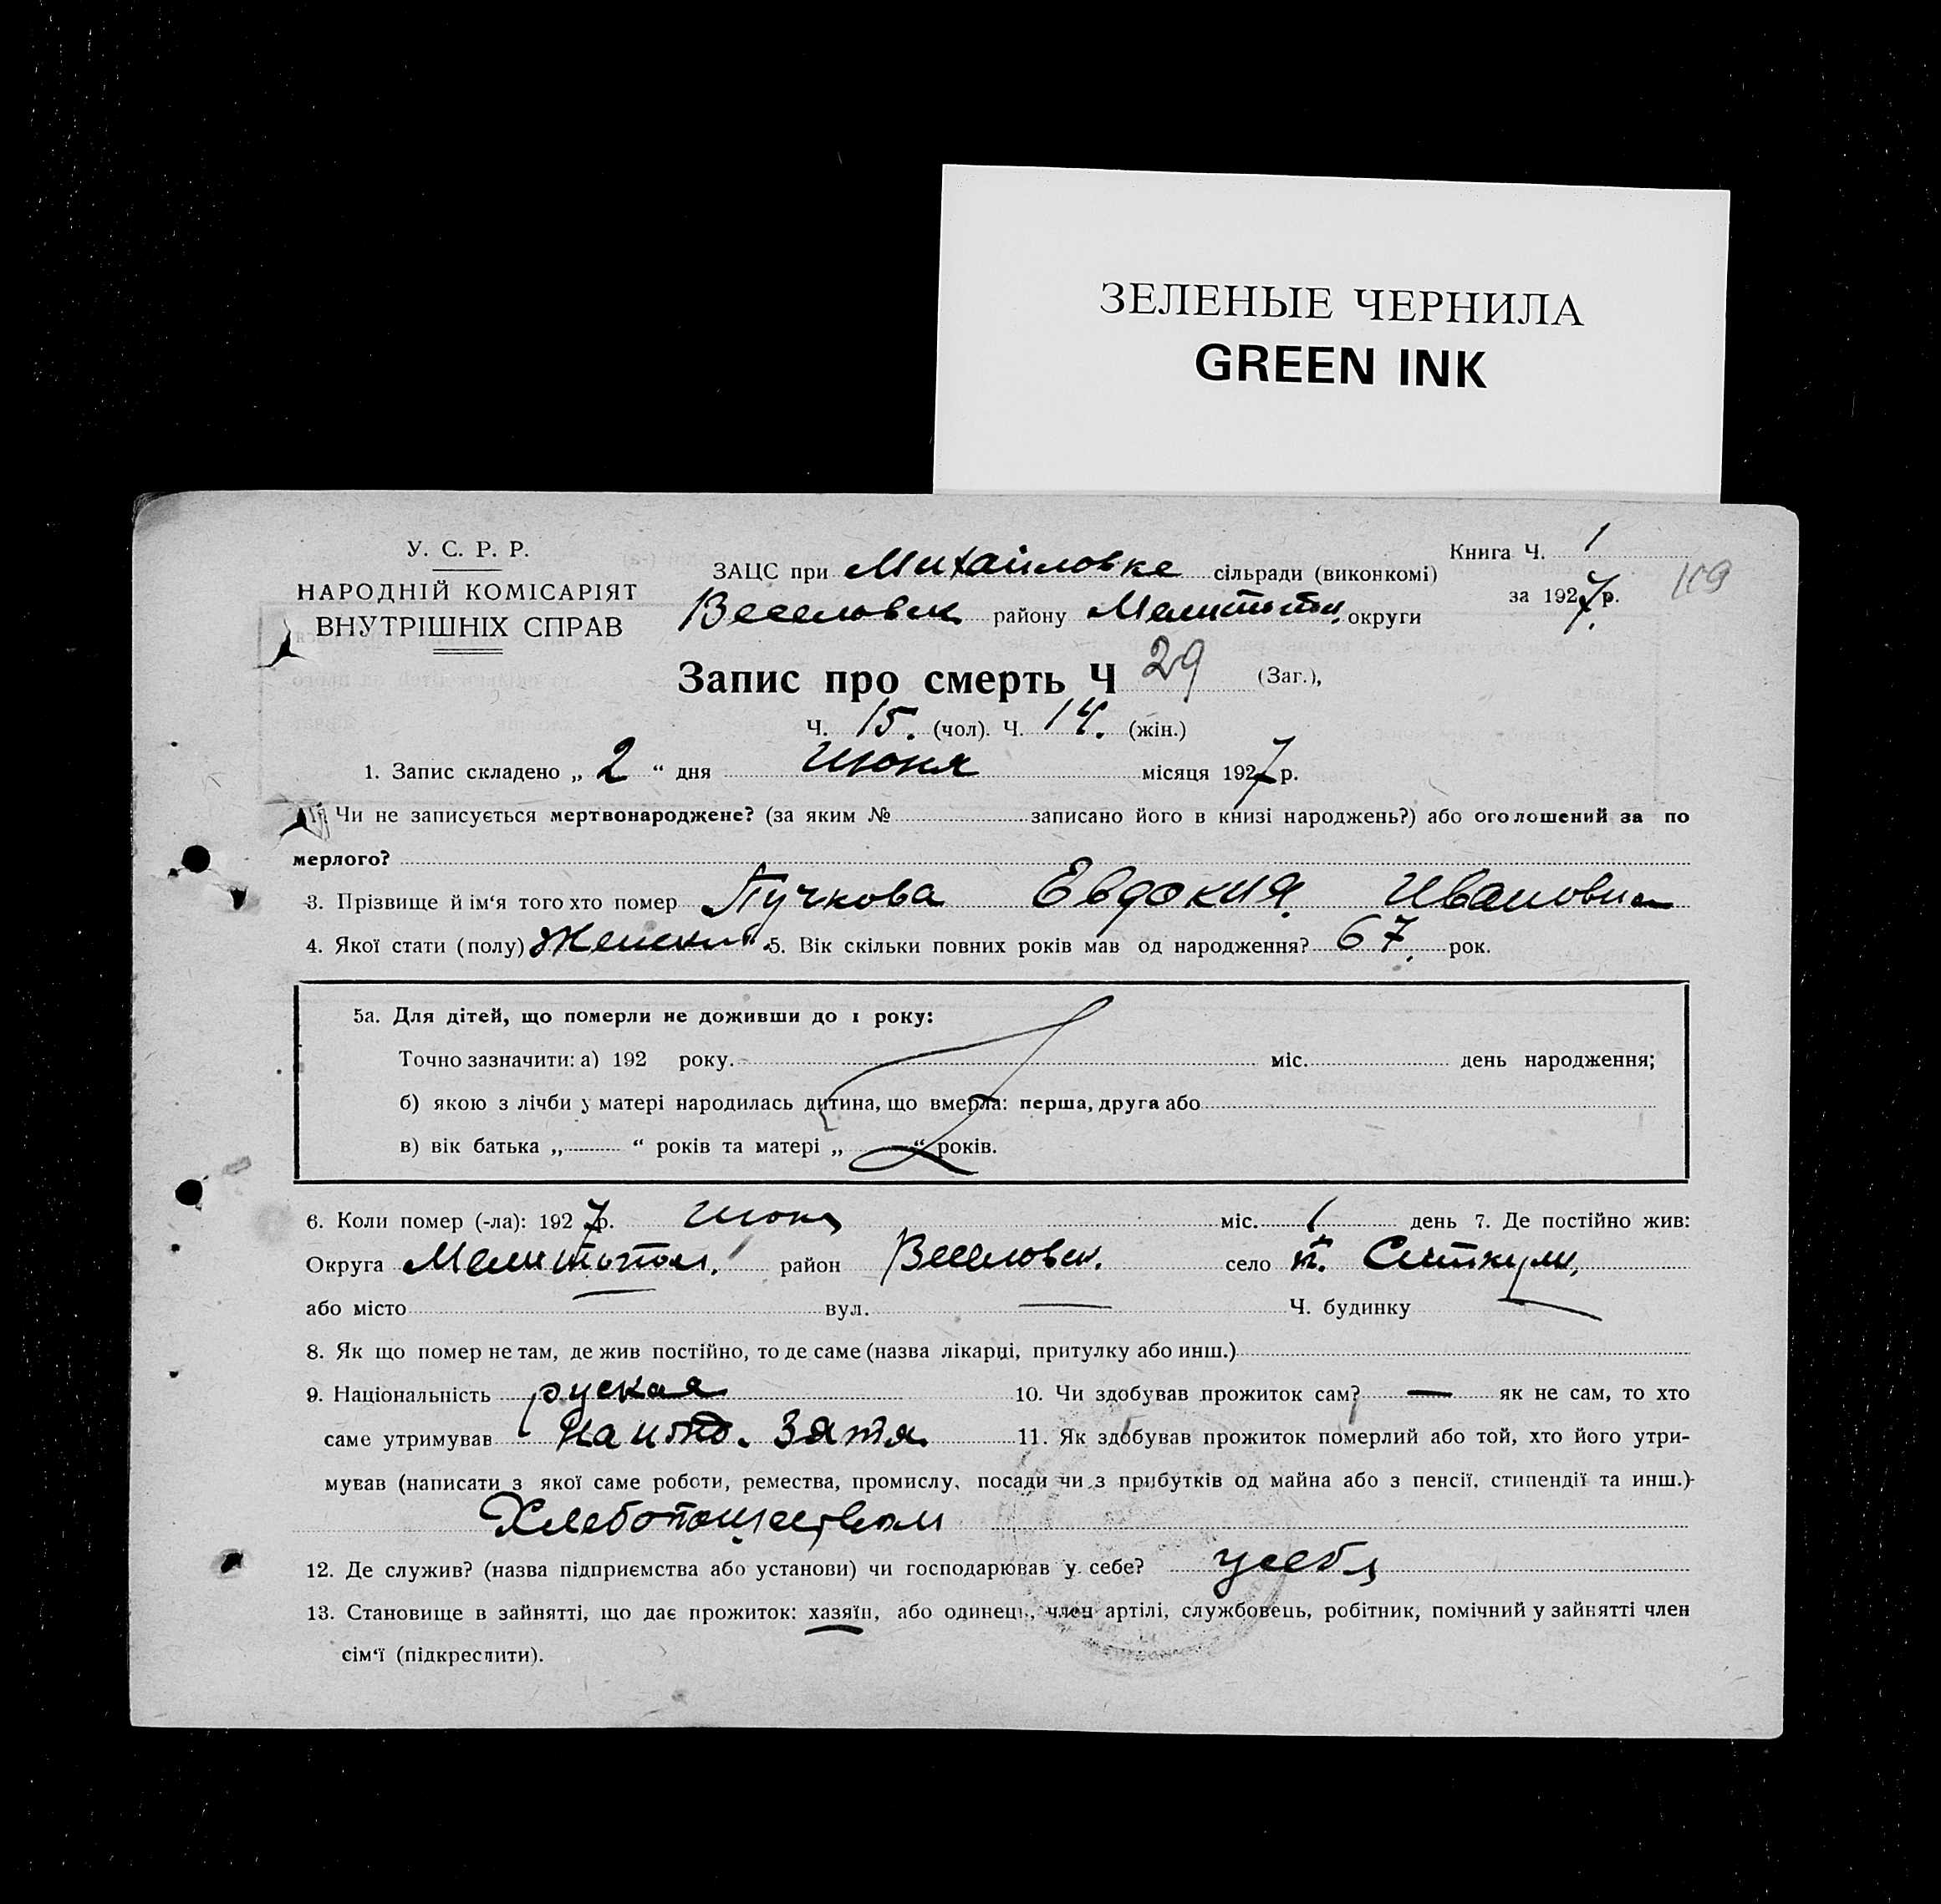 ЗЕЛЕНЫЕ ЧЕРНИЛА
GREEN INK
У. С. Р. Р.
НАРОДНІЙ КОМІСАРІЯТ
ВНУТРІШНІХ СПРАВ
ЗАЦС при Михайловке сільради (виконкомі)
Веселовск району Мелитопол. округи
Книга Ч. 1
за 1927 р.
119
Запис про смерть Ч 29 (Заг.),
Ч. 15. (чол). Ч. 14. (жін.)
1. Запис складено „ 2 “ дня Июня місяця 1927 р.
Чи не записується мертвонароджене? (за яким № записано його в книзі народжень?) або оголошений за по
мерлого?
3. Прізвище й ім‘я того хто помер Пучкова Евдокия Ивановна
4. Якої стати (полу) Женский 5. Вік скільки повних років мав од народження? 67 рок.
5а. Для дітей, що померли не доживши до 1 року:
Точно зазначити: а) 192 року. міс. день народження;
б) якою з лічби у матері народилась дитина, що вмерла: перша, друга або
в) вік батька „ “ років та матері „ “ років.
6. Коли помер (-ла): 1927 р. Июня міс. 1 день 7. Де постійно жив:
Округа Мелитопол. район Веселовск. село
або місто вул. Ч. будинку
8. Як що помер не там, де жив постійно, то де саме (назва лікарні, притулку або инш.)
9. Національність руская 10. Чи здобував прожиток сам? — як не сам, то хто
саме утримував На ижд. Зятя 11. Як здобував прожиток померлий або той, хто його утри-
мував (написати з якої саме роботи, ремества, промислу, посади чи з прибутків од майна або з пенсії, стипендії та инш.)
Хлебопашеством
12. Де служив? (назва підприємства або установи) чи господарював у себе? у себя
13. Становище в зайнятті, що дає прожиток: хазяїн, або одинець, член артілі, службовець, робітник, помічний у зайнятті член
сім‘ї (підкреслити).